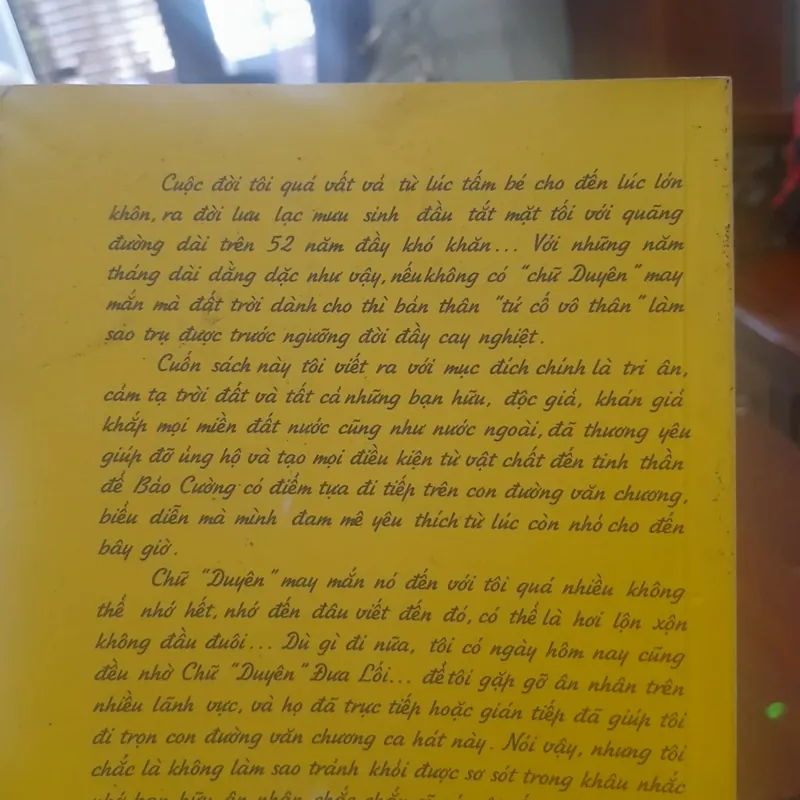 Cuộc đời tôi quá vất vả từ lúc tấm bé cho đến lúc lớn
khôn, ra đời lưu lạc mưu sinh đầu tắt mặt tối với quãng
đường dài trên 52 năm đầy khó khăn... Với những năm
tháng dài dằng dặc như vậy, nếu không có "chữ Duyên" may
mắn mà đất trời dành cho thì bản thân "tứ cố vô thân" làm
sao trụ được trước ngưỡng đời đầy cay nghiệt.
Cuốn sách này tôi viết ra với mục đích chính là tri ân,
cảm tạ trời đất và tất cả những bạn hữu, độc giả, khán giả
khắp mọi miền đất nước cũng như nước ngoài, đã thương yêu
giúp đỡ ủng hộ và tạo mọi điều kiện từ vật chất đến tinh thần
để Bảo Cường có điểm tựa đi tiếp trên con đường văn chương,
biểu diễn mà mình đam mê yêu thích từ lúc còn nhỏ cho đến
bây giờ.
Chữ "Duyên" may mắn nó đến với tôi quá nhiều không
thể nhớ hết, nhớ đến đâu viết đến đó, có thể là hơi lộn xộn
không đầu đuôi... Dù gì đi nữa, tôi có ngày hôm nay cũng
đều nhờ Chữ "Duyên" Đưa Lối... để tôi gặp gỡ ân nhân trên
nhiều lãnh vực, và họ đã trực tiếp hoặc gián tiếp đã giúp tôi
đi trọn con đường văn chương ca hát này. Nói vậy, nhưng tôi
chắc là không làm sao tránh khỏi được sơ sót trong khâu nhắc